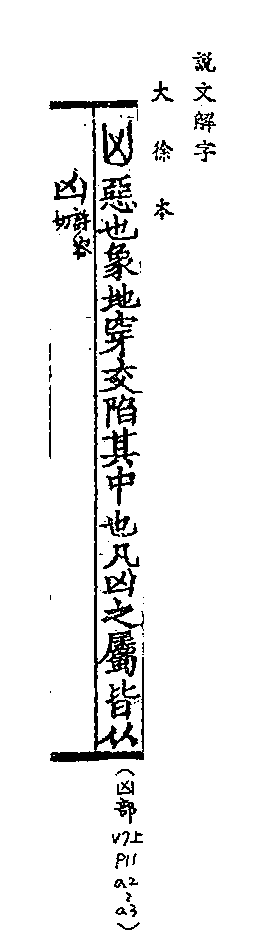 說文解字
大徐本
凶惡也象地穿交陷其中也凡凶之屬皆从
凶許容切
(凶部 V7上 P11 a2~a3)